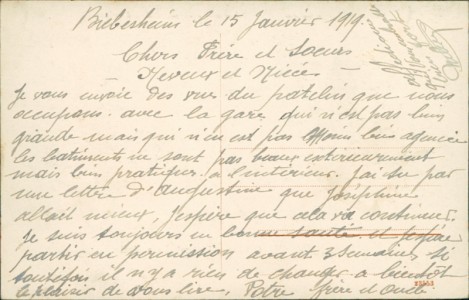 Biebesheim le 15 Janvier 1919.
Chers Frère et Soeurs
- Neveux et Nièces -
Je vous envoie des vues du patelin que nous
occupons. avec la gare qui n'est pas bien
grande mais qui n'en est pas moins bien agencée
les batiments ne sont pas beaux extérieurement
mais bien pratiques à l'intérieur. J'ai su par
une lettre d'Augustine que Joséphine
allait mieux, j'espère que cela va continuer.
Je suis toujours en bonne santé et j'espère
partir en permission avant 3 semaines si
toutefois il n'y a rien de changer. a bientôt
le plaisir de vous lire, Votre frère et oncle